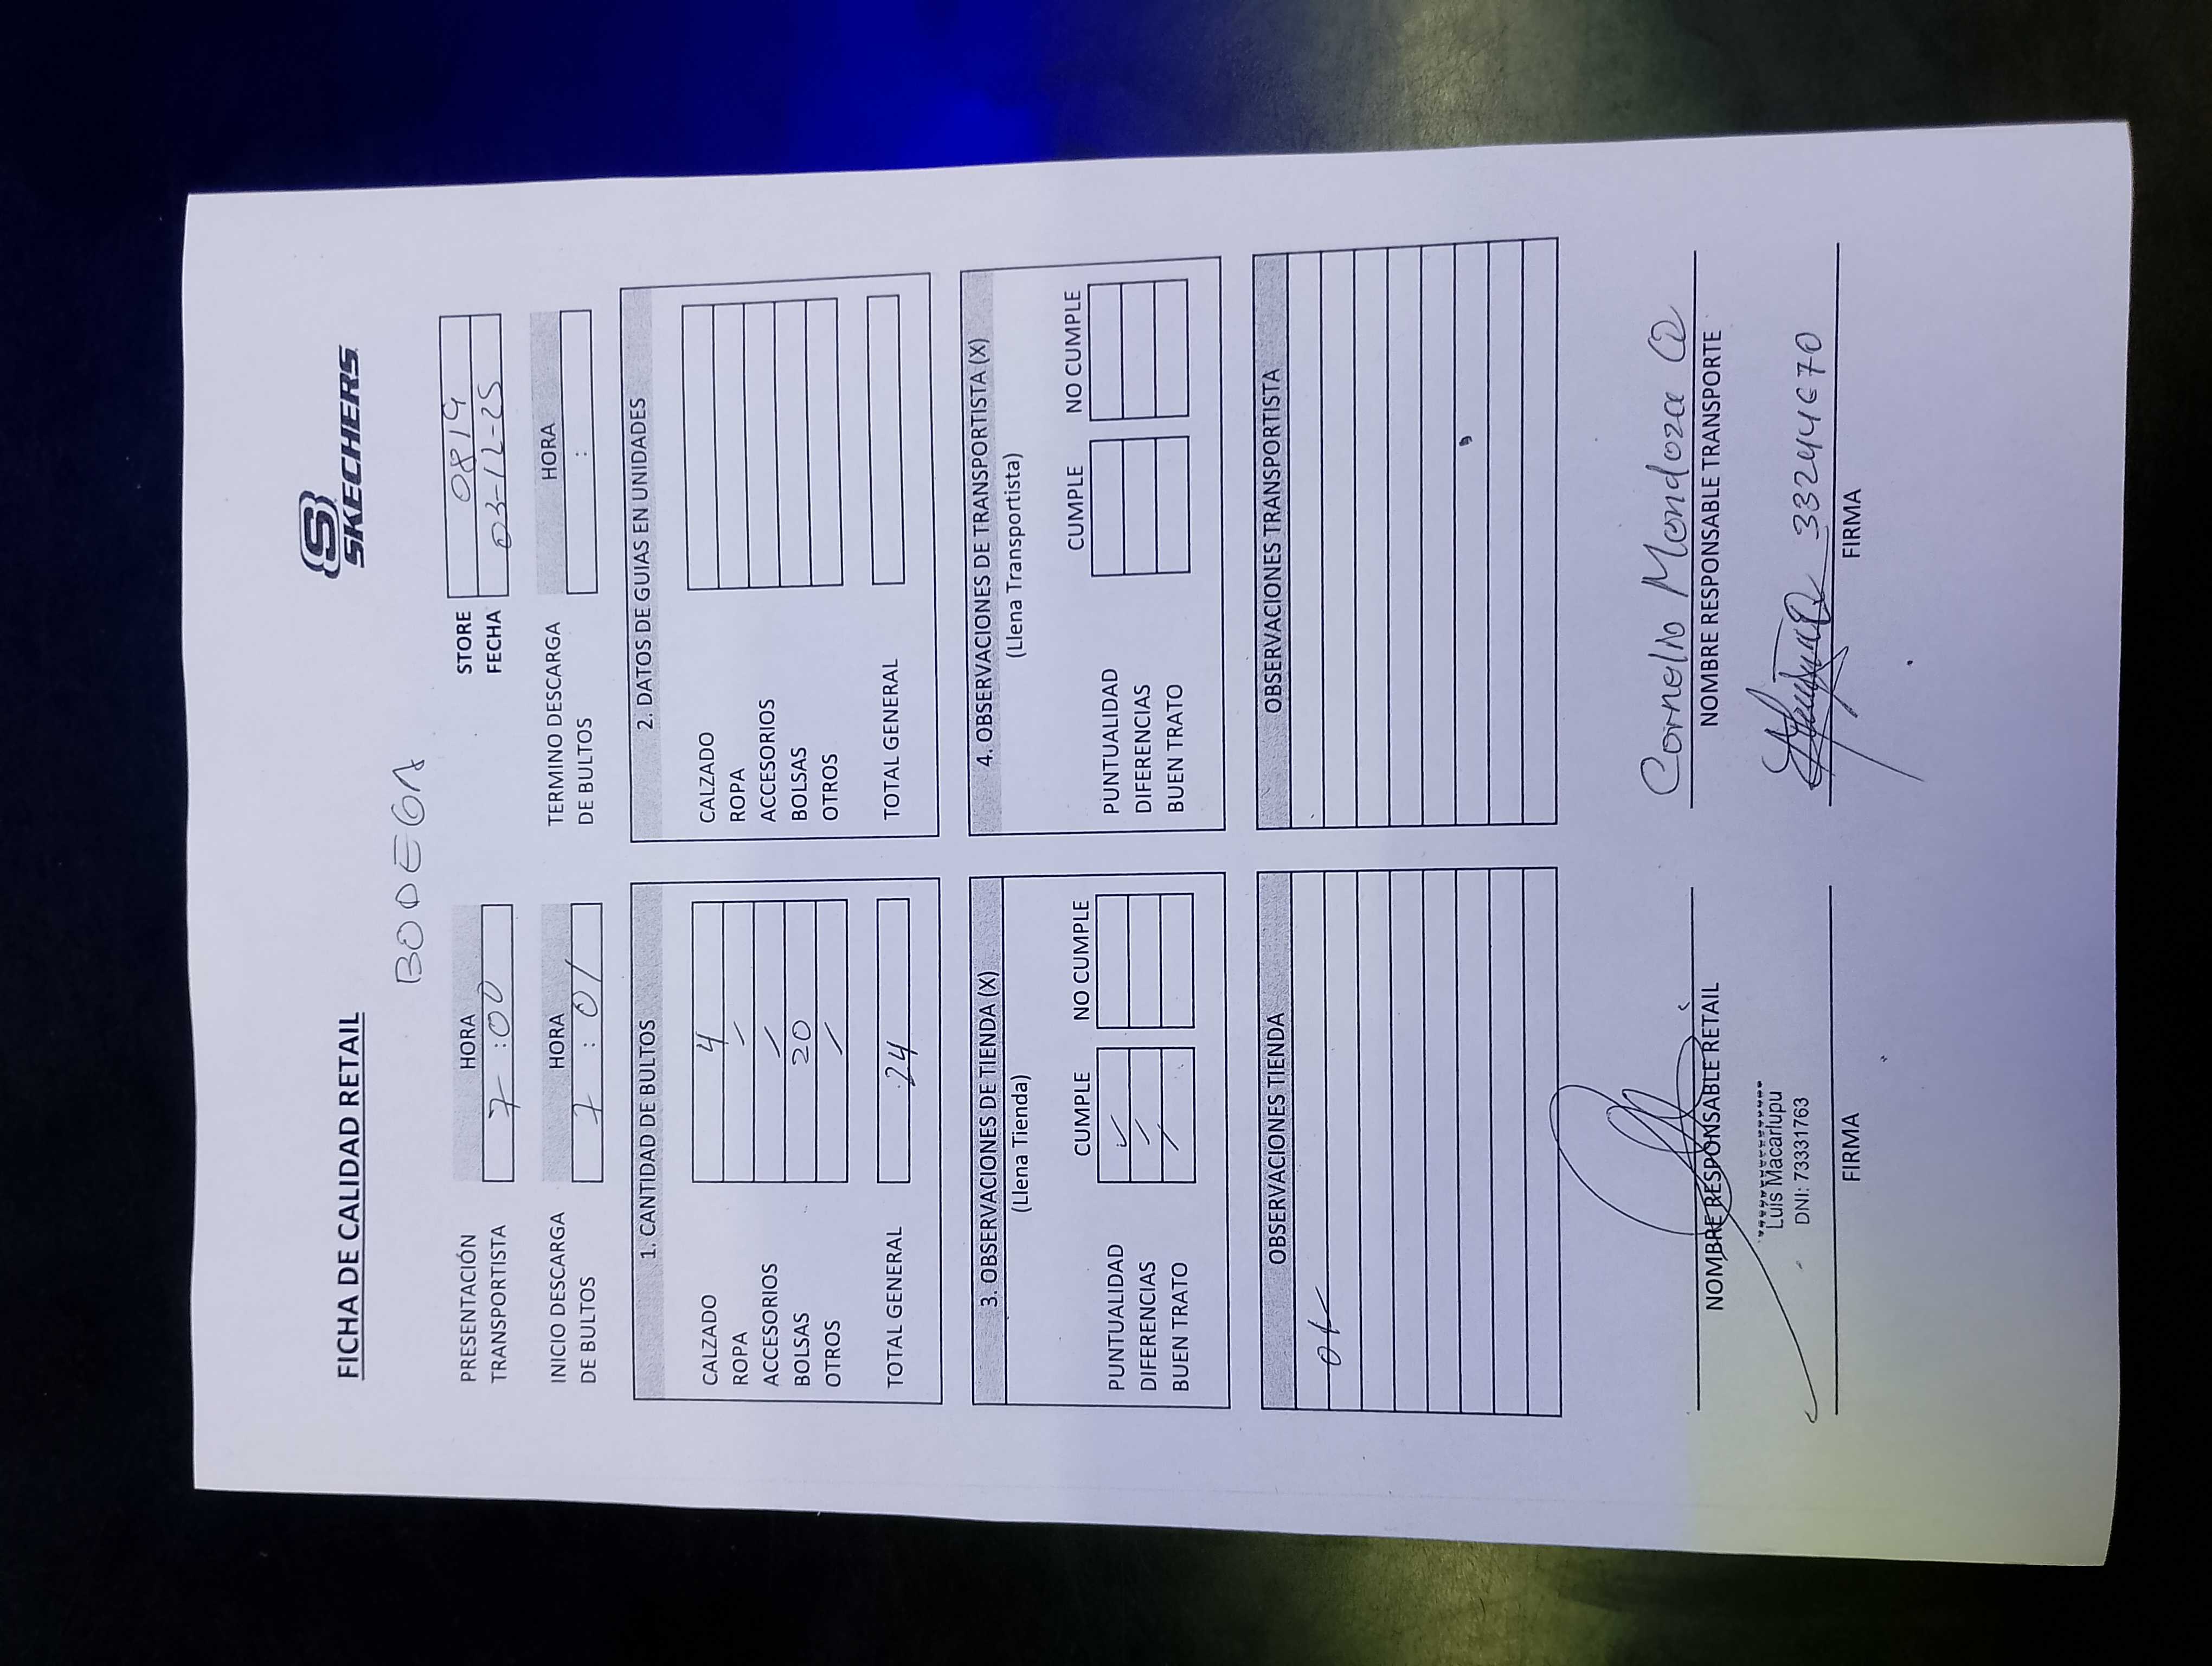 FICHA DE CALIDAD RETAIL
SKECHERS
BODEGA
STORE 0819
FECHA 03-12-25
PRESENTACIÓN TRANSPORTISTA
HORA
7:00
INICIO DESCARGA DE BULTOS
HORA
7:01
TERMINO DESCARGA DE BULTOS
HORA
:
1. CANTIDAD DE BULTOS
CALZADO 4
ROPA /
ACCESORIOS /
BOLSAS 20
OTROS /
TOTAL GENERAL 24
2. DATOS DE GUIAS EN UNIDADES
CALZADO
ROPA
ACCESORIOS
BOLSAS
OTROS
TOTAL GENERAL
3. OBSERVACIONES DE TIENDA (X)
(Llena Tienda)
CUMPLE NO CUMPLE
PUNTUALIDAD ✓
DIFERENCIAS /
BUEN TRATO /
4. OBSERVACIONES DE TRANSPORTISTA (X)
(Llena Transportista)
CUMPLE NO CUMPLE
PUNTUALIDAD
DIFERENCIAS
BUEN TRATO
OBSERVACIONES TIENDA
ok
OBSERVACIONES TRANSPORTISTA
NOMBRE RESPONSABLE RETAIL
Luis Macarlupu
DNI: 73331763
FIRMA
Cornelio Mendoza
NOMBRE RESPONSABLE TRANSPORTE
33244670
FIRMA